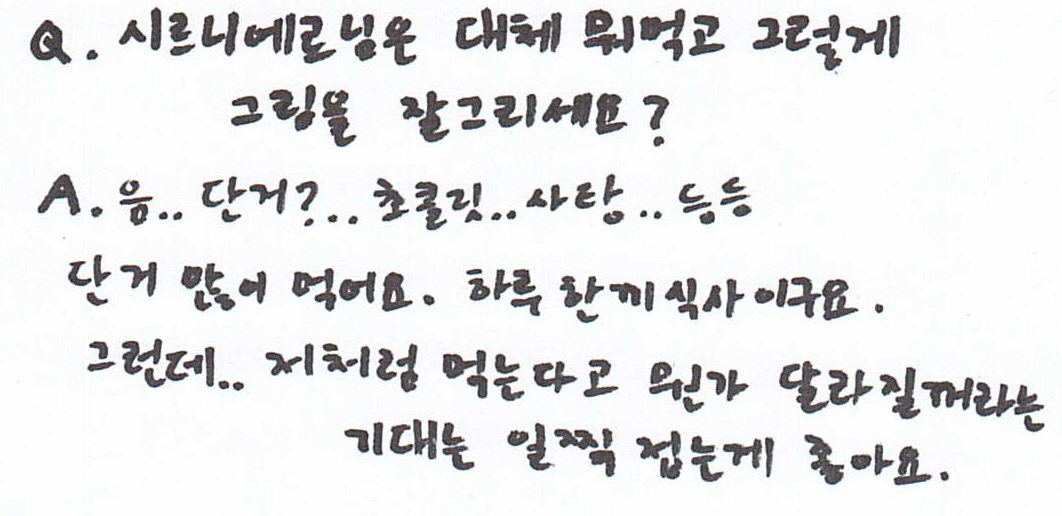 Q. 시르니에로님은 대체 뭐먹고 그렇게
그림을 잘그리세요?
A. 음.. 단거?.. 초콜릿.. 사탕.. 등등
단거 많이 먹어요. 하루 한끼식사이구요.
그런데.. 저처럼 먹는다고 뭔가 달라질꺼라는
기대는 일찍 접는게 좋아요.